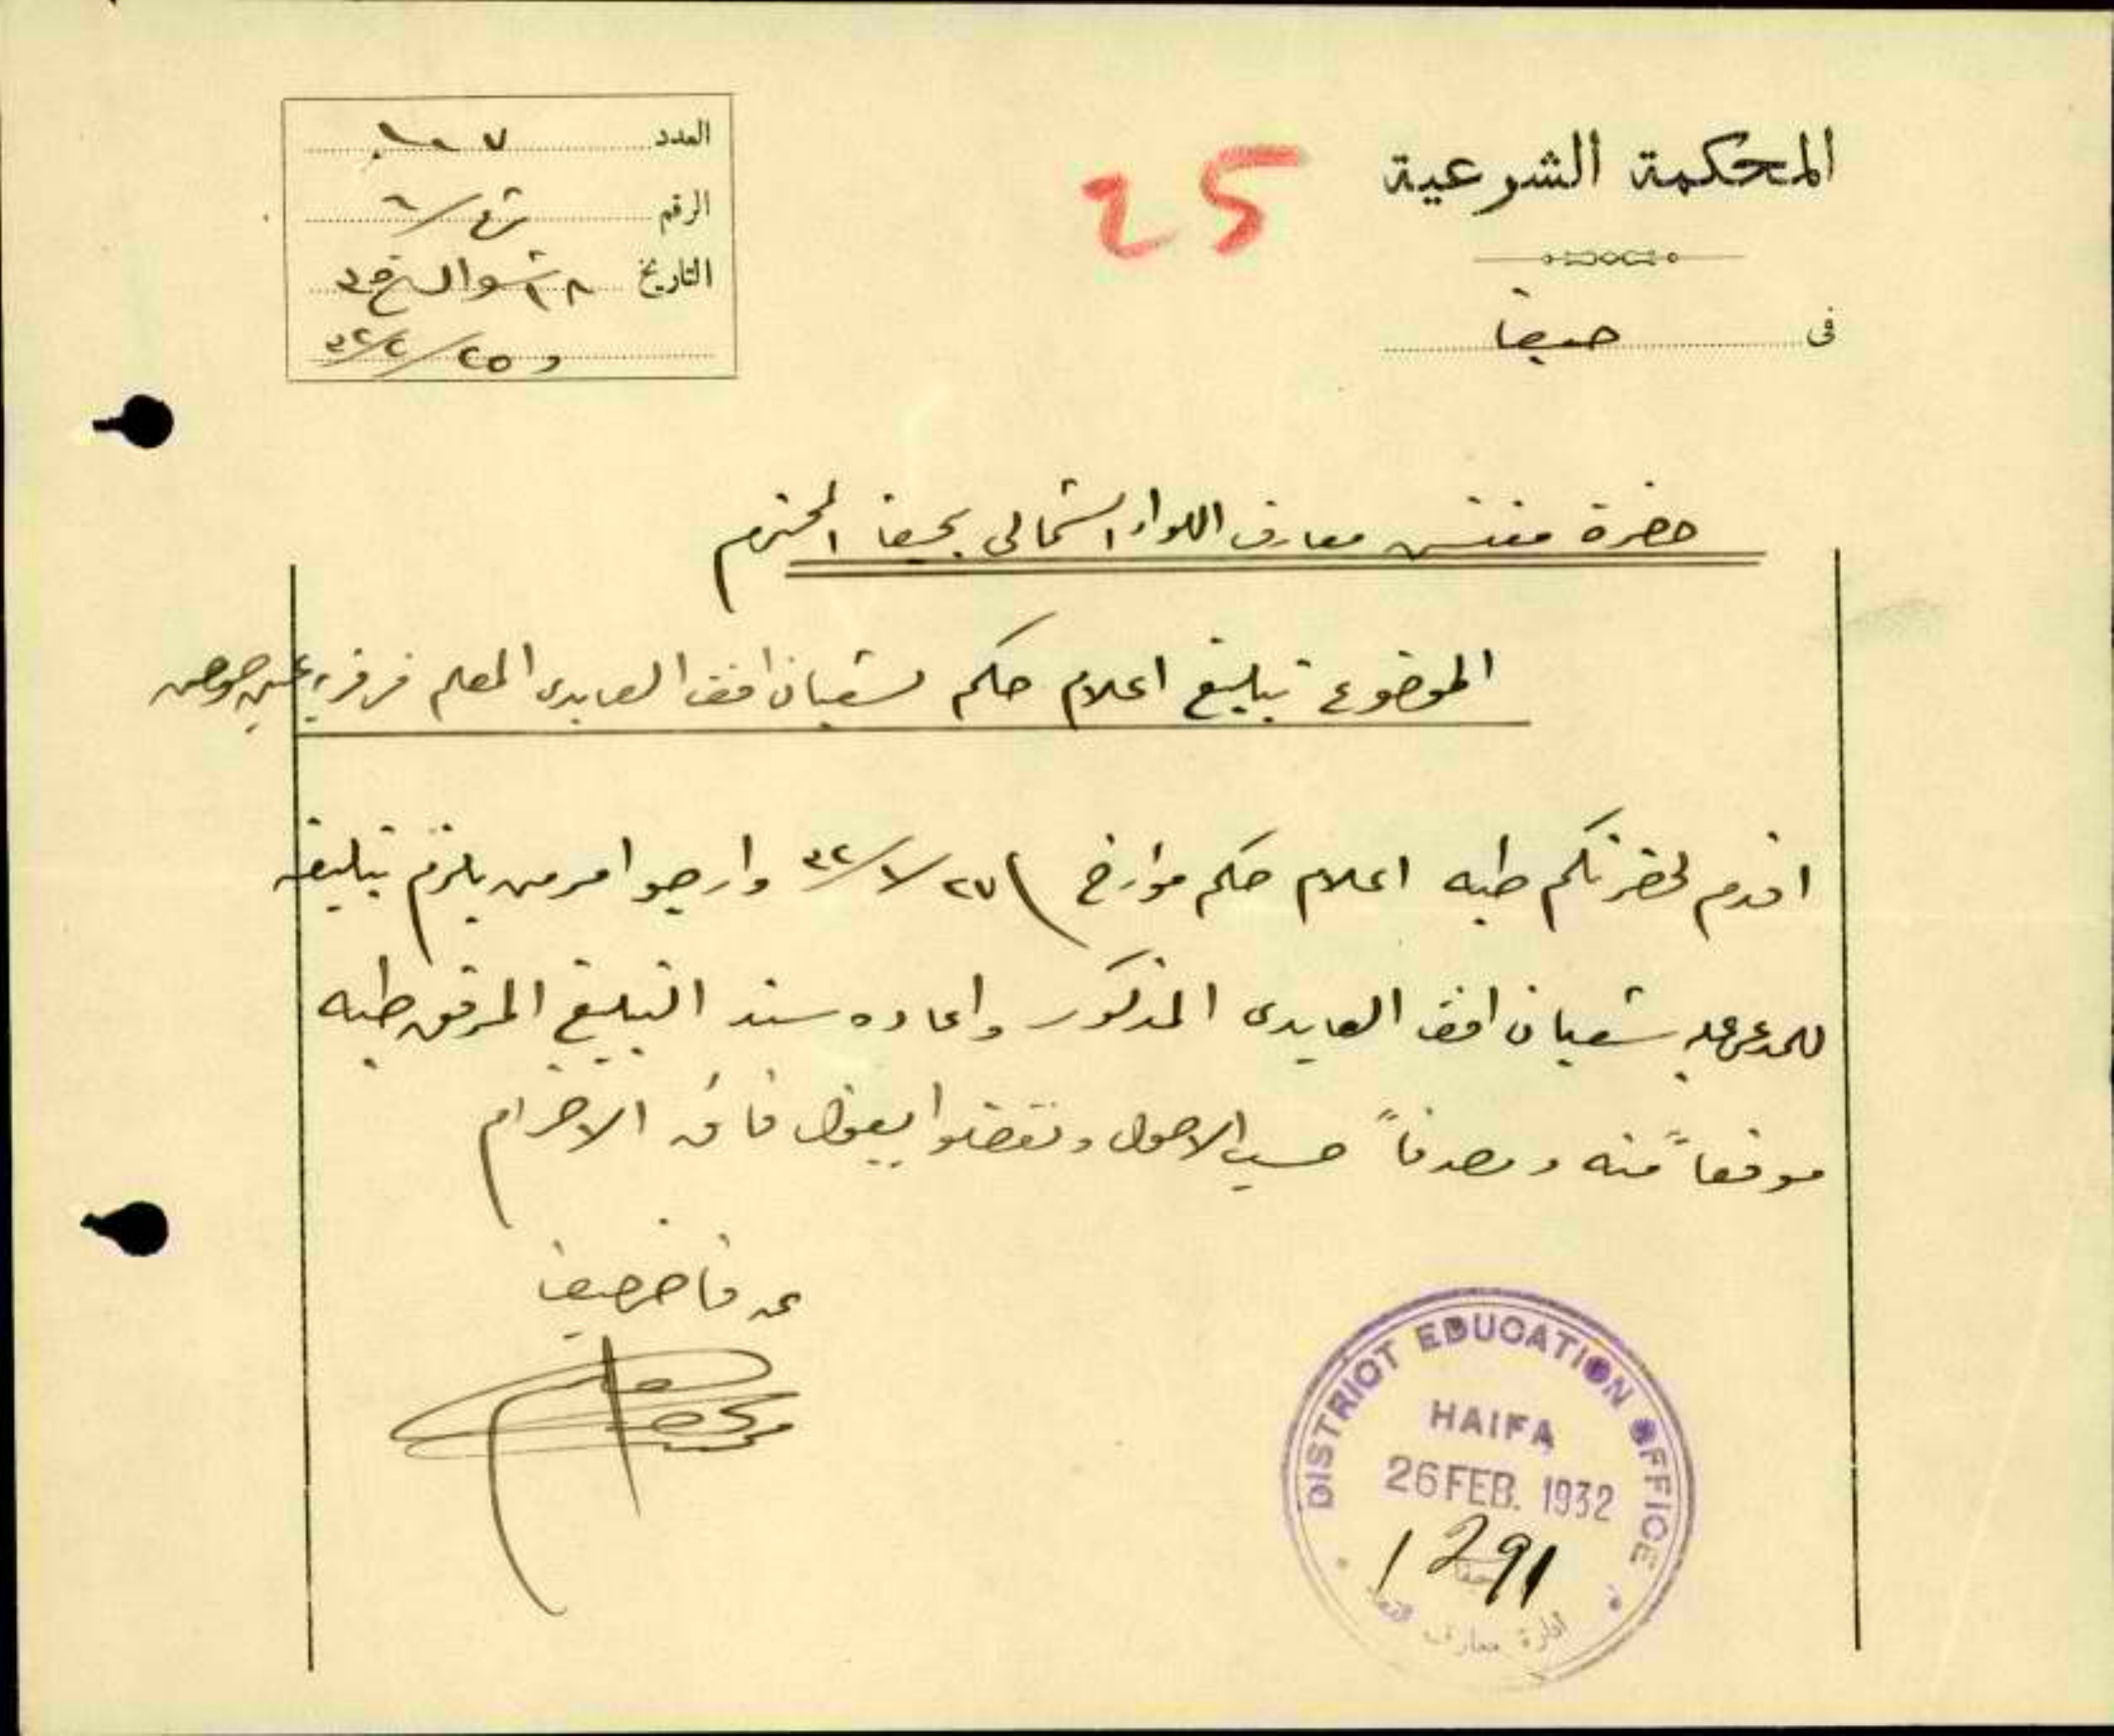 المحكمة الشرعية
فى حيفا
25
العدد
الرقم
التاريخ ١٨ شوال سنة
و ٢٥/٢/٣٢
حضرة مفتش معارف اللواء الشمالي بحيفا المحترم
الموضوع تبليغ اعلام حكم لشعبان افندي العايدى المعلم في قرية عين حوض
اقدم لحضرتكم طيه اعلام حكم مؤرخ في ٢٧/١/٣٢ وارجو امر من يلزم تبليغه
للمدعى عليه شعبان افندي العايدى المذكور واعاده سند التبليغ المرفق طيه
موقعاً منه ومصدقاً حسب الاصول وتفضلوا بقبول فائق الاحترام
عن قاضي حيفا
DISTRICT EDUCATION OFFICE
HAIFA
26 FEB. 1932
1291
حيفا
ادارة معارف